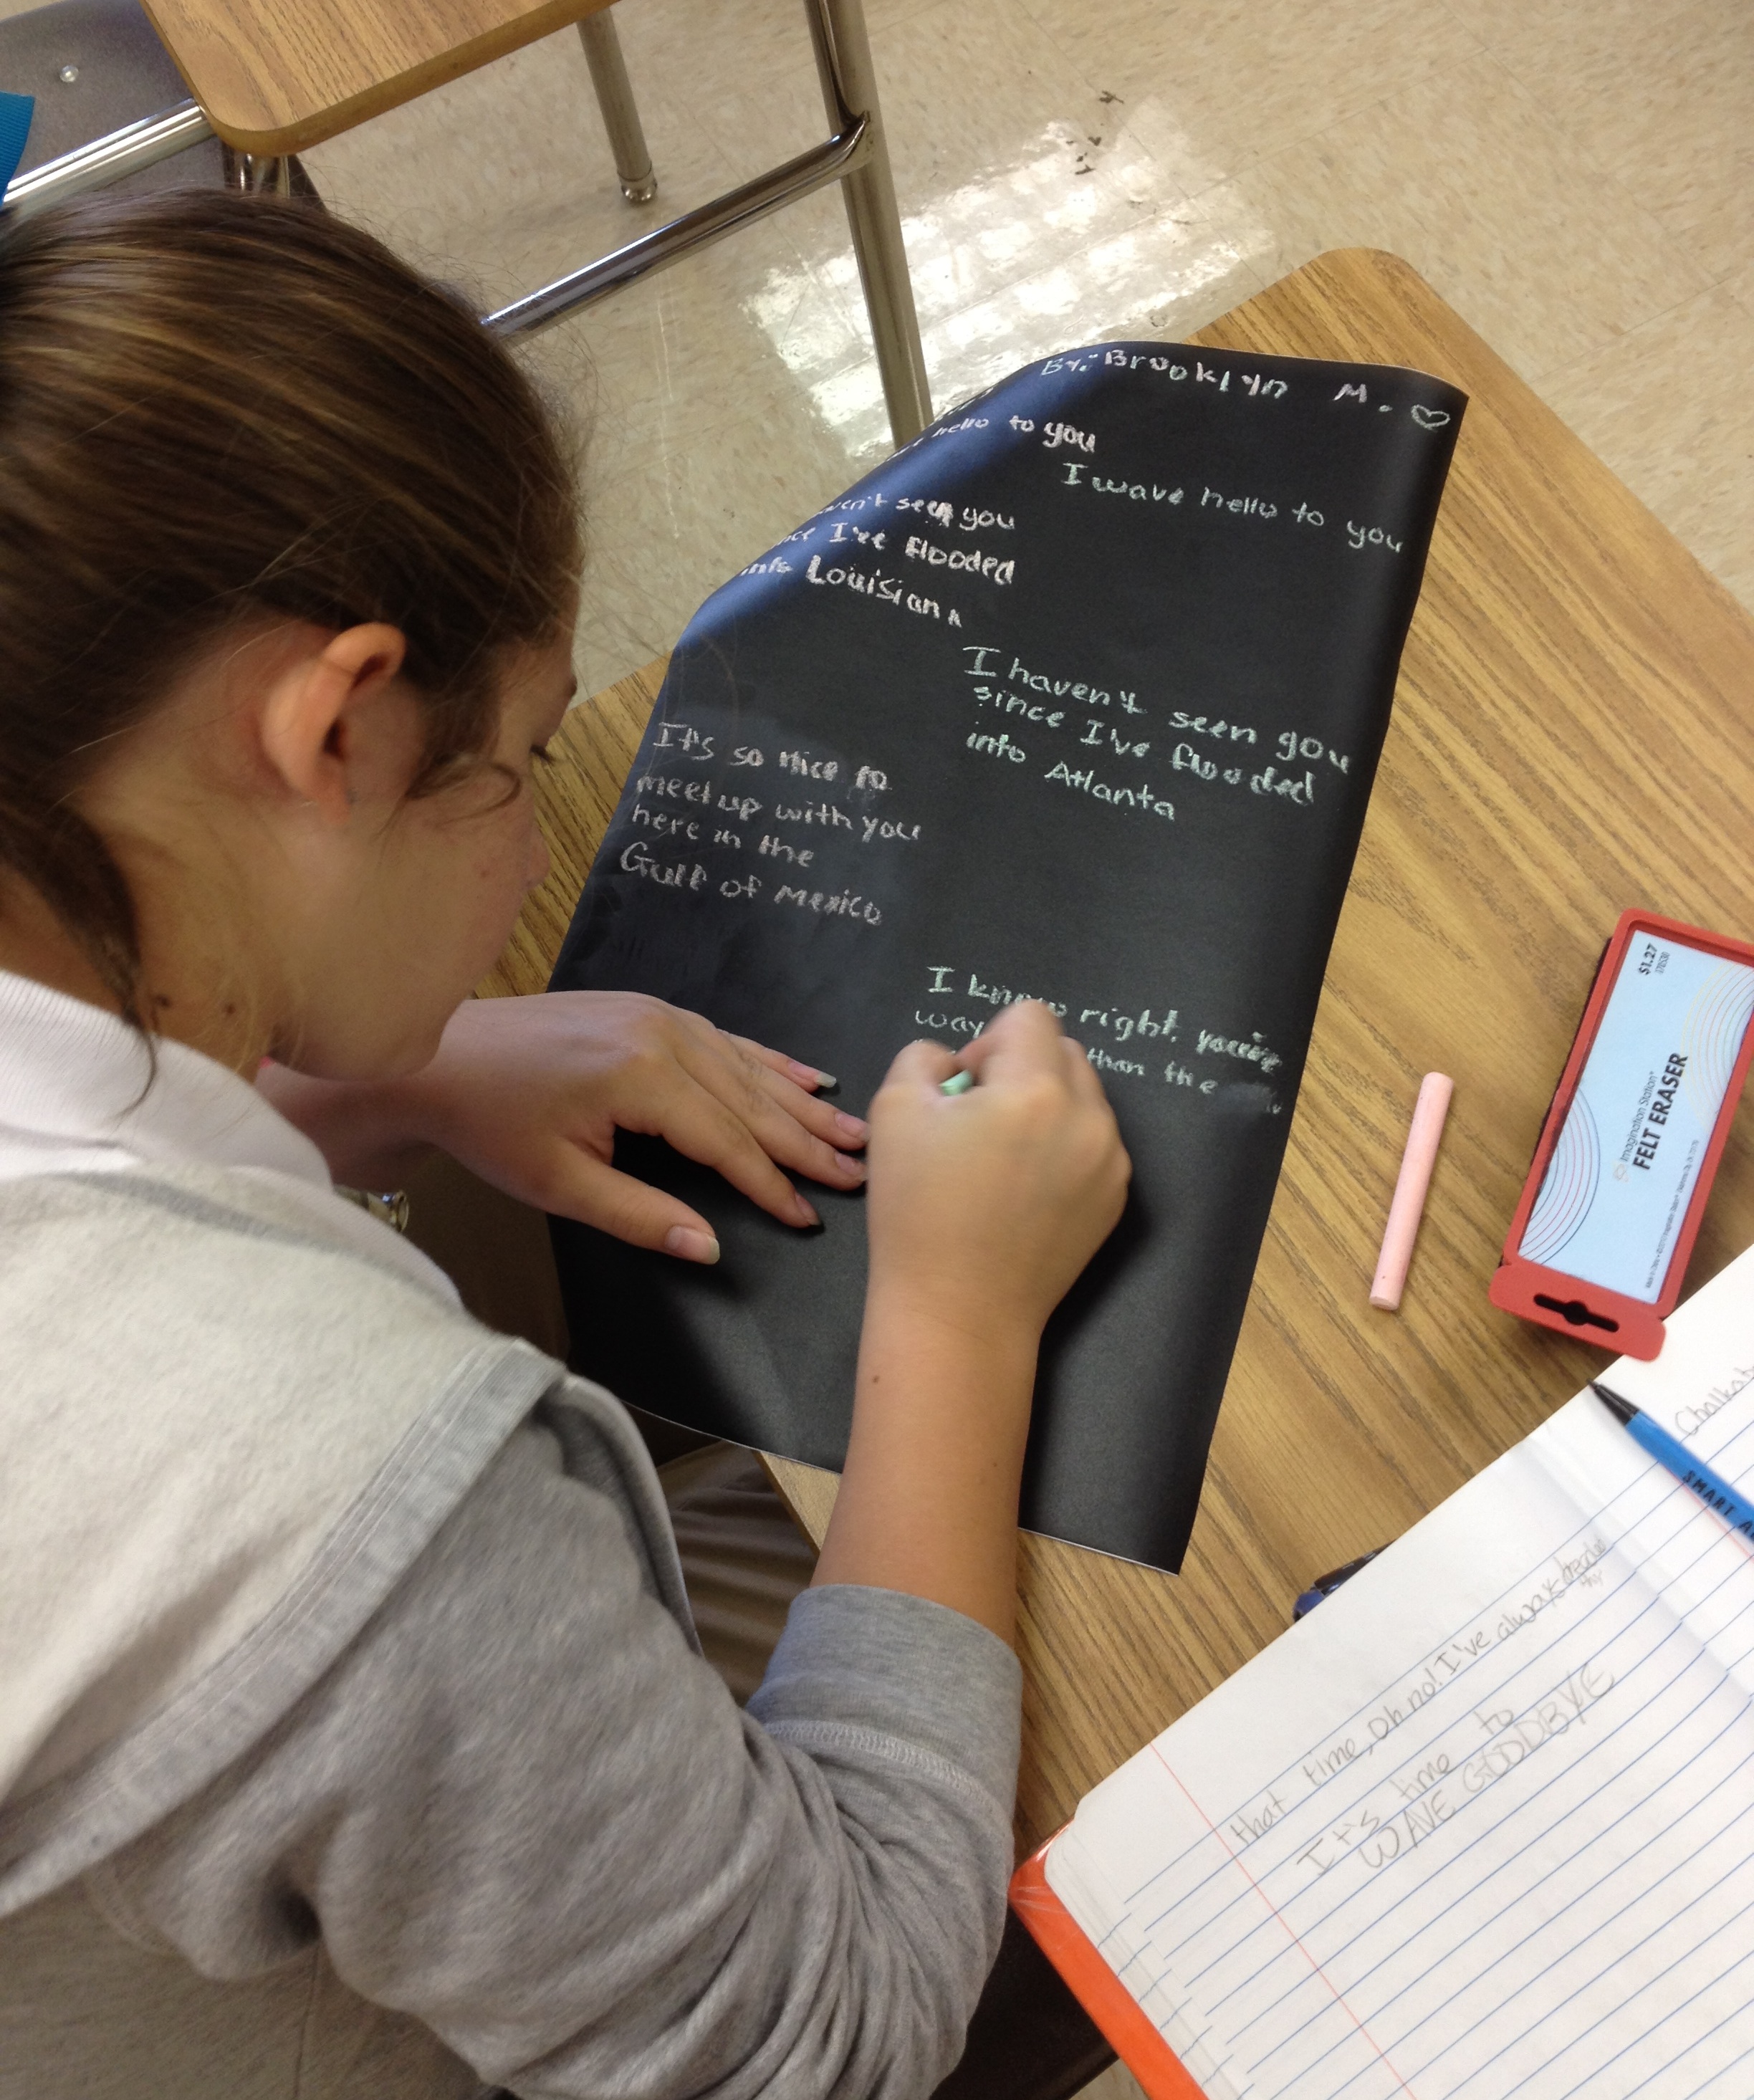 By: Brooklyn M. ♡
hello to you
I wave hello to you
seen you
I've flooded
into Louisiana
I haven't seen you
since I've flooded
into Atlanta
It's so nice to
meet up with you
here in the
Gulf of Mexico
I know right, you're
way than the
$1.27
Imagination Station
FELT ERASER
SMART
that time, Oh no! I've always
It's time to
WAVE GOODBYE